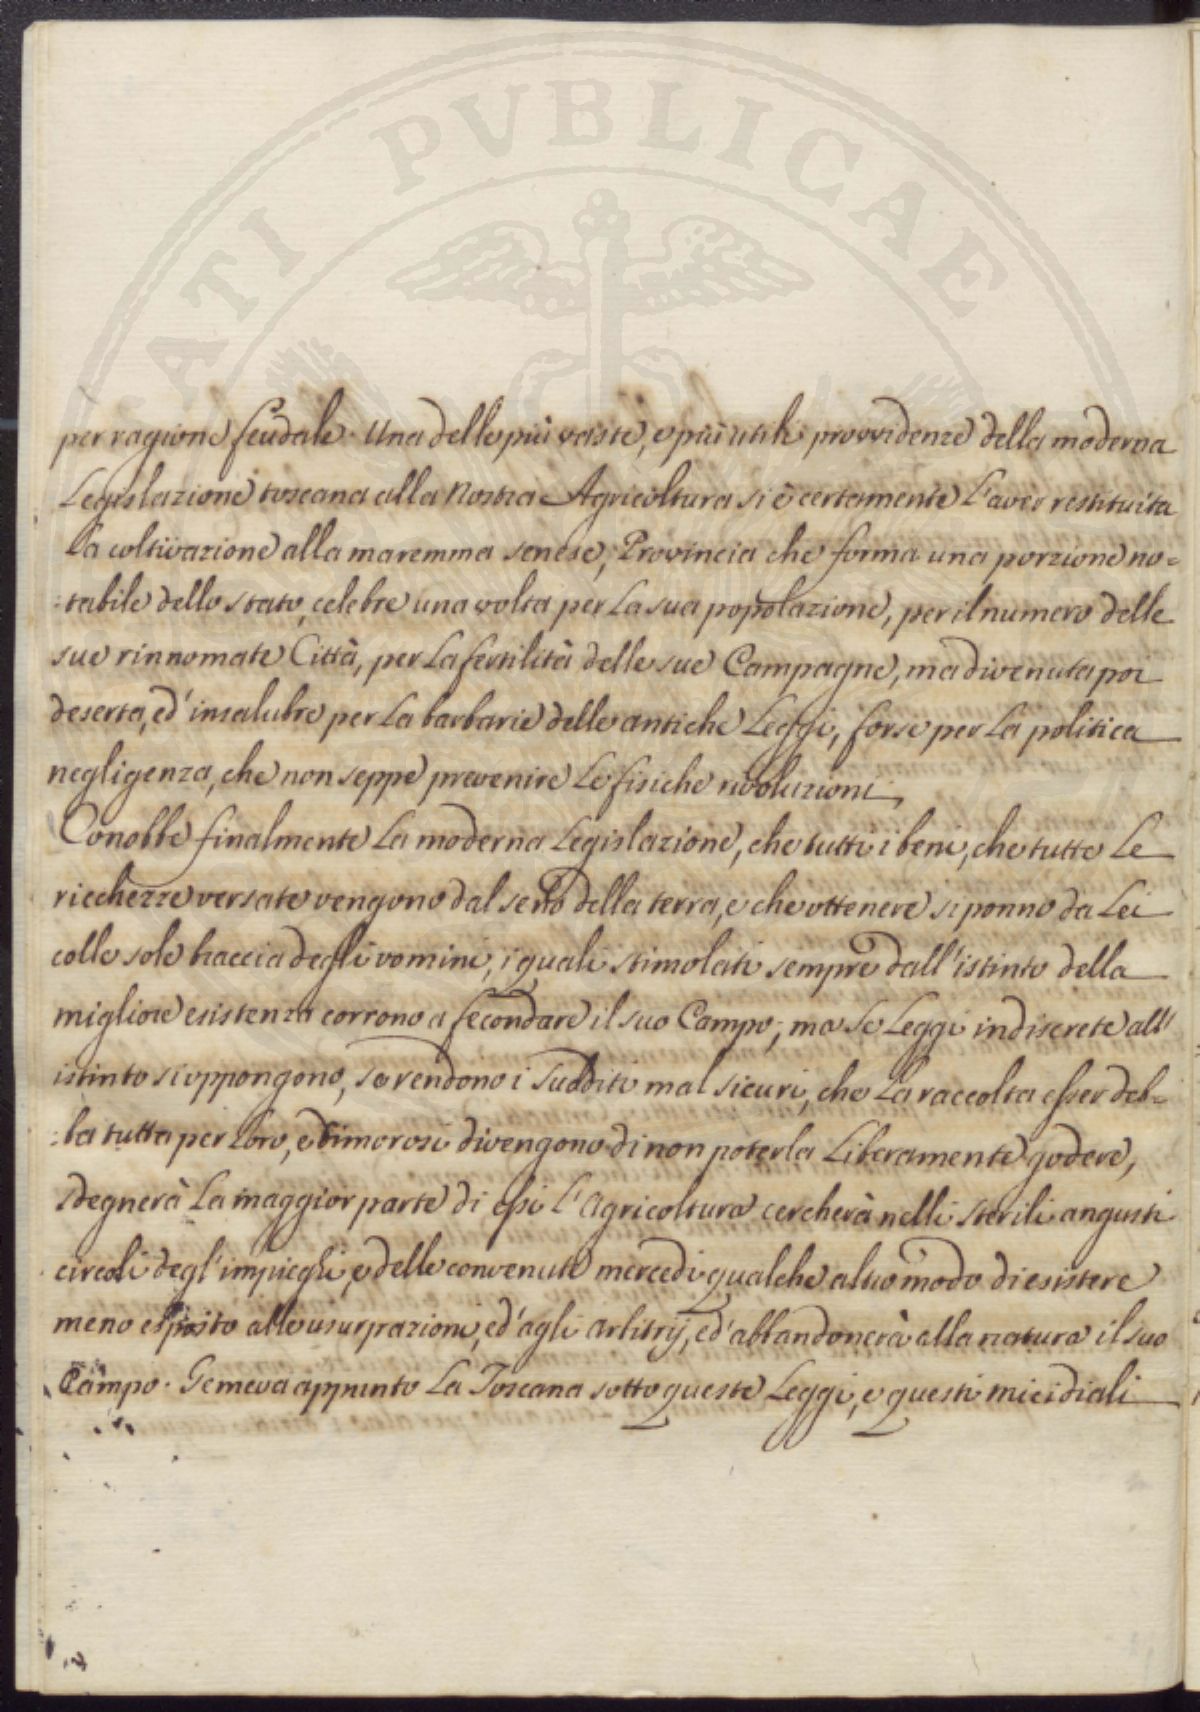 ATI PVBLICAE
per ragione feudale. Una delle più vaste, e più utili provvidenze della moderna
Legislazione toscana alla Nostra Agricoltura si è certamente l'aver restituita
la coltivazione alla maremma senese, Provincia che forma una porzione no=
:tabile dello stato, celebre una volta per la sua popolazione, per il numero delle
sue rinnomate Città, per la fertilità delle sue Campagne, ma divenuta poi
deserta, ed' insalubre per la barbarie delle antiche Leggi, forse per la politica
negligenza, che non seppe prevenire le fisiche rivoluzioni,
Conobbe finalmente la moderna Legislazione, che tutti i beni, che tutte le
ricchezze versate vengono dal seno della terra, e che ottenere si ponno da Lei
colle sole braccia degli uomini, i quali stimolati sempre dall'istinto della
migliore esistenza corrono a fecondare il suo Campo; ma se Leggi indiscrete all'
istinto si oppongono, se rendono i Sudditi mal sicuri, che la raccolta esser deb=
:ba tutta per loro, e timorosi divengono di non poterla liberamente godere,
sdegnerà la maggior parte di essi l'Agricoltura cercherà nelli sterili angusti
circoli degl'impieghi, e delle convenute mercedi qualche altro modo di esistere
meno esposto alle usurpazioni, ed' agli arbitrij, ed' abbandonerà alla natura il suo
Campo. Gemeva appunto la Toscana sotto queste Leggi, e questi micidiali